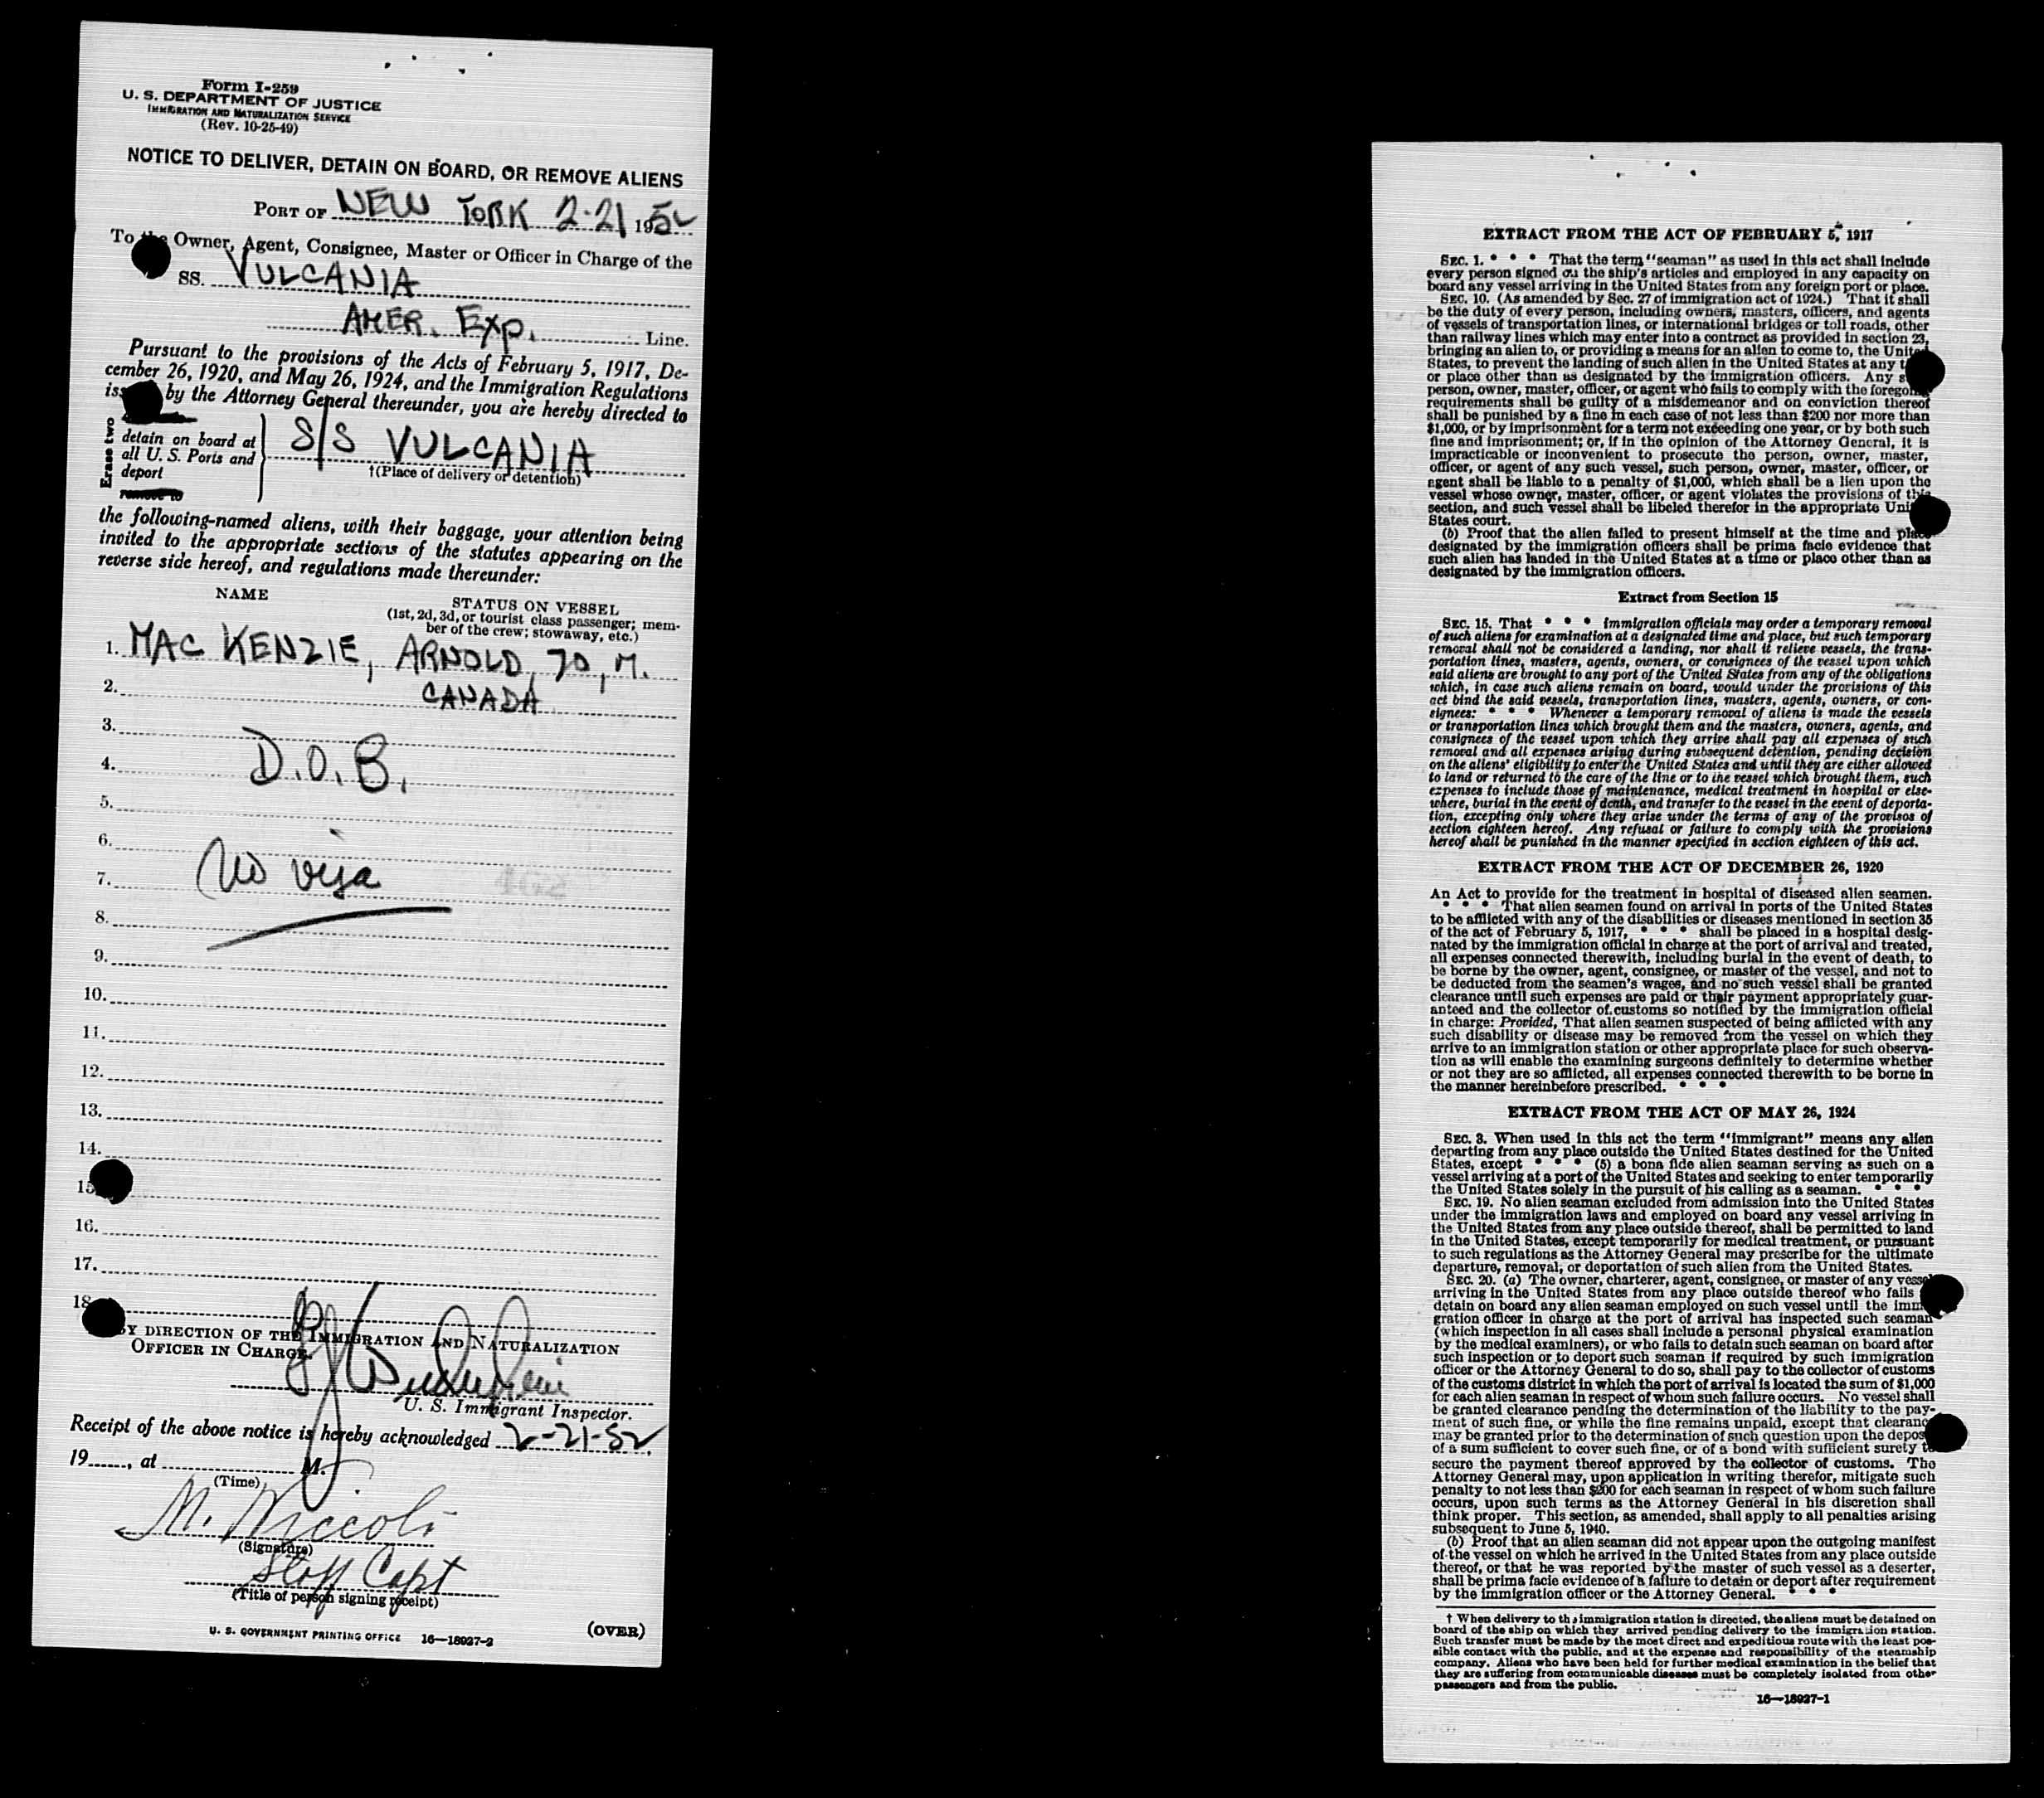 Form I-259
U. S. DEPARTMENT OF JUSTICE
IMMIGRATION AND NATURALIZATION SERVICE
(Rev. 10-25-49)
NOTICE TO DELIVER, DETAIN ON BOARD, OR REMOVE ALIENS
PORT OF NEW YORK 2-21 1952
To the Owner, Agent, Consignee, Master or Officer in Charge of the
SS. VULCANIA
AMER. Exp. Line.
Pursuant to the provisions of the Acts of February 5, 1917, De-
cember 26, 1920, and May 26, 1924, and the Immigration Regulations
iss by the Attorney General thereunder, you are hereby directed to
Erase two
detain on board at
all U. S. Ports and
deport
remove to
S/S VULCANIA
†(Place of delivery or detention)
the following-named aliens, with their baggage, your attention being
invited to the appropriate sections of the statutes appearing on the
reverse side hereof, and regulations made thereunder:
NAME
STATUS ON VESSEL
(1st, 2d, 3d, or tourist class passenger; mem-
ber of the crew; stowaway, etc.)
1. MAC KENZIE, ARNOLD, 70, M.
2. CANADA
3.
4. D.O.B.
5.
6.
7. No visa
8.
9.
10.
11.
12.
13.
14.
15
16.
17.
18
BY DIRECTION OF THE IMMIGRATION AND NATURALIZATION
OFFICER IN CHARGE.
U. S. Immigrant Inspector.
Receipt of the above notice is hereby acknowledged 2-21-52,
19......, at M.
(Time)
M. Niccoli
(Signature)
Staff Capt
(Title of person signing receipt)
U. S. GOVERNMENT PRINTING OFFICE 16—18927-2
(OVER)
EXTRACT FROM THE ACT OF FEBRUARY 5, 1917
SEC. 1. * * * That the term "seaman" as used in this act shall include
every person signed on the ship's articles and employed in any capacity on
board any vessel arriving in the United States from any foreign port or place.
SEC. 10. (As amended by Sec. 27 of immigration act of 1924.) That it shall
be the duty of every person, including owners, masters, officers, and agents
of vessels of transportation lines, or international bridges or toll roads, other
than railway lines which may enter into a contract as provided in section 23,
bringing an alien to, or providing a means for an alien to come to, the United
States, to prevent the landing of such alien in the United States at any t
or place other than as designated by the immigration officers. Any s
person, owner, master, officer, or agent who fails to comply with the foregoing
requirements shall be guilty of a misdemeanor and on conviction thereof
shall be punished by a fine in each case of not less than $200 nor more than
$1,000, or by imprisonment for a term not exceeding one year, or by both such
fine and imprisonment; or, if in the opinion of the Attorney General, it is
impracticable or inconvenient to prosecute the person, owner, master,
officer, or agent of any such vessel, such person, owner, master, officer, or
agent shall be liable to a penalty of $1,000, which shall be a lien upon the
vessel whose owner, master, officer, or agent violates the provisions of this
section, and such vessel shall be libeled therefor in the appropriate Uni
States court.
(b) Proof that the alien failed to present himself at the time and place
designated by the immigration officers shall be prima facie evidence that
such alien has landed in the United States at a time or place other than as
designated by the immigration officers.
Extract from Section 15
SEC. 15. That * * * immigration officials may order a temporary removal
of such aliens for examination at a designated time and place, but such temporary
removal shall not be considered a landing, nor shall it relieve vessels, the trans-
portation lines, masters, agents, owners, or consignees of the vessel upon which
said aliens are brought to any port of the United States from any of the obligations
which, in case such aliens remain on board, would under the provisions of this
act bind the said vessels, transportation lines, masters, agents, owners, or con-
signees: * * * Whenever a temporary removal of aliens is made the vessels
or transportation lines which brought them and the masters, owners, agents, and
consignees of the vessel upon which they arrive shall pay all expenses of such
removal and all expenses arising during subsequent detention, pending decision
on the aliens' eligibility to enter the United States and until they are either allowed
to land or returned to the care of the line or to the vessel which brought them, such
expenses to include those of maintenance, medical treatment in hospital or else-
where, burial in the event of death, and transfer to the vessel in the event of deporta-
tion, excepting only where they arise under the terms of any of the provisos of
section eighteen hereof. Any refusal or failure to comply with the provisions
hereof shall be punished in the manner specified in section eighteen of this act.
EXTRACT FROM THE ACT OF DECEMBER 26, 1920
An Act to provide for the treatment in hospital of diseased alien seamen.
* * * That alien seamen found on arrival in ports of the United States
to be afflicted with any of the disabilities or diseases mentioned in section 35
of the act of February 5, 1917, * * * shall be placed in a hospital desig-
nated by the immigration official in charge at the port of arrival and treated,
all expenses connected therewith, including burial in the event of death, to
be borne by the owner, agent, consignee, or master of the vessel, and not to
be deducted from the seamen's wages, and no such vessel shall be granted
clearance until such expenses are paid or their payment appropriately guar-
anteed and the collector of customs so notified by the immigration official
in charge: Provided, That alien seamen suspected of being afflicted with any
such disability or disease may be removed from the vessel on which they
arrive to an immigration station or other appropriate place for such observa-
tion as will enable the examining surgeons definitely to determine whether
or not they are so afflicted, all expenses connected therewith to be borne in
the manner hereinbefore prescribed. * * *
EXTRACT FROM THE ACT OF MAY 26, 1924
SEC. 3. When used in this act the term "immigrant" means any alien
departing from any place outside the United States destined for the United
States, except * * * (5) a bona fide alien seaman serving as such on a
vessel arriving at a port of the United States and seeking to enter temporarily
the United States solely in the pursuit of his calling as a seaman. * * *
SEC. 19. No alien seaman excluded from admission into the United States
under the immigration laws and employed on board any vessel arriving in
the United States from any place outside thereof, shall be permitted to land
in the United States, except temporarily for medical treatment, or pursuant
to such regulations as the Attorney General may prescribe for the ultimate
departure, removal, or deportation of such alien from the United States.
SEC. 20. (a) The owner, charterer, agent, consignee, or master of any vessel
arriving in the United States from any place outside thereof who fails
detain on board any alien seaman employed on such vessel until the immi-
gration officer in charge at the port of arrival has inspected such seaman
(which inspection in all cases shall include a personal physical examination
by the medical examiners), or who fails to detain such seaman on board after
such inspection or to deport such seaman if required by such immigration
officer or the Attorney General to do so, shall pay to the collector of customs
of the customs district in which the port of arrival is located the sum of $1,000
for each alien seaman in respect of whom such failure occurs. No vessel shall
be granted clearance pending the determination of the liability to the pay-
ment of such fine, or while the fine remains unpaid, except that clearance
may be granted prior to the determination of such question upon the depos
of a sum sufficient to cover such fine, or of a bond with sufficient surety to
secure the payment thereof approved by the collector of customs. The
Attorney General may, upon application in writing therefor, mitigate such
penalty to not less than $200 for each seaman in respect of whom such failure
occurs, upon such terms as the Attorney General in his discretion shall
think proper. This section, as amended, shall apply to all penalties arising
subsequent to June 5, 1940.
(b) Proof that an alien seaman did not appear upon the outgoing manifest
of the vessel on which he arrived in the United States from any place outside
thereof, or that he was reported by the master of such vessel as a deserter,
shall be prima facie evidence of a failure to detain or deport after requirement
by the immigration officer or the Attorney General. * * *
† When delivery to the immigration station is directed, the aliens must be detained on
board of the ship on which they arrived pending delivery to the immigration station.
Such transfer must be made by the most direct and expeditious route with the least pos-
sible contact with the public, and at the expense and responsibility of the steamship
company. Aliens who have been held for further medical examination in the belief that
they are suffering from communicable diseases must be completely isolated from other
passengers and from the public.
16—18927-1